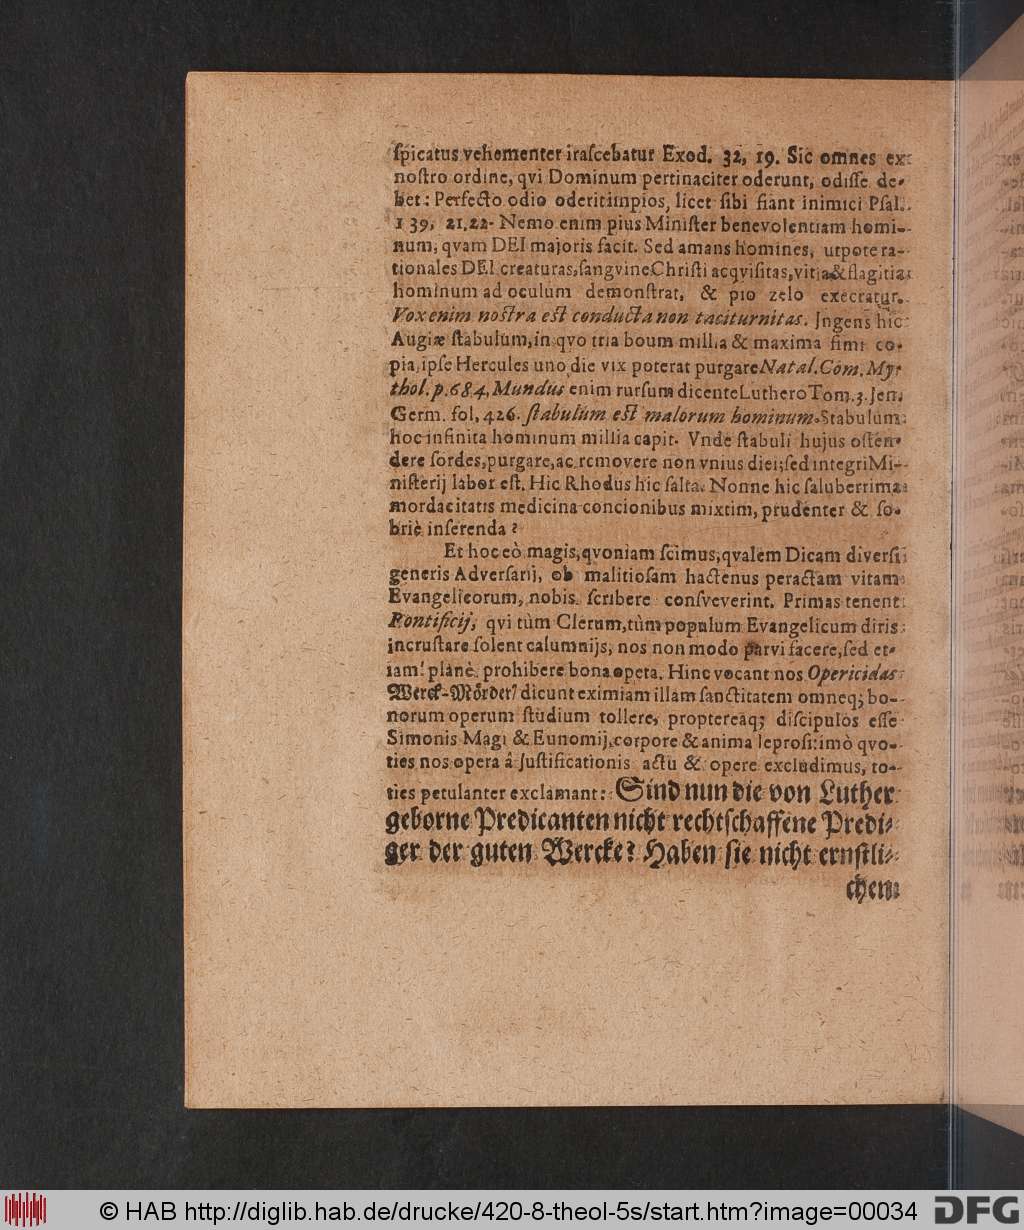 ſpicatus vehementer iraſcebatur Exod. 32, 19. Sic omnes ex
noſtro ordine, qvi Dominum pertinaciter oderunt, odiſſe de-
bet: Perfecto odio oderit impios, licet ſibi fiant inimici Pſal.
139, 21.22. Nemo enim pius Miniſter benevolentiam homi-
num, qvam DEI majoris facit. Sed amans homines, utpote ra-
tionales DEI creaturas, ſangvine Chriſti acqviſitas, vitia & flagitia
hominum ad oculum demonſtrat, & pio zelo execratur.
Vox enim noſtra eſt conducta non taciturnitas. Ingens hic
Augiæ ſtabulum, in qvo tria boum millia & maxima fimi co-
pia, ipſe Hercules uno die vix poterat purgare Natal. Com. My-
thol. p. 684. Mundus enim rurſum dicente Luthero Tom. 3. Jen.
Germ. fol. 426. ſtabulum eſt malorum hominum. Stabulum
hoc infinita hominum millia capit. Vnde ſtabuli hujus oſten-
dere ſordes, purgare, ac removere non vnius diei; ſed integri Mi-
niſterij labor eſt. Hic Rhodus hic ſalta. Nonne hic ſaluberrima
mordacitatis medicina concionibus mixtim, prudenter & ſo-
briè inſerenda?
Et hoc eò magis, qvoniam ſcimus, qvalem Dicam diverſi
generis Adverſarij, ob malitioſam hactenus peractam vitam
Evangelicorum, nobis ſcribere conſveverint. Primas tenent
Pontificij, qvi tùm Clerum, tùm populum Evangelicum diris
incruſtare ſolent calumnijs, nos non modo parvi facere, ſed et-
iam planè prohibere bona opera. Hinc vocant nos Opericidas
Werck-Mörder/ dicunt eximiam illam ſanctitatem omneq; bo-
norum operum ſtudium tollere, proptereaq; diſcipulos eſſe
Simonis Magi & Eunomij, corpore & anima leproſi: imò qvo-
ties nos opera â Juſtificationis actu & opere excludimus, to-
ties petulanter exclamant: Sind nun die von Luther
geborne Predicanten nicht rechtſchaffene Predi-
ger der guten Wercke? Haben ſie nicht ernſtli-
chen
© HAB http://diglib.hab.de/drucke/420-8-theol-5s/start.htm?image=00034
DFG